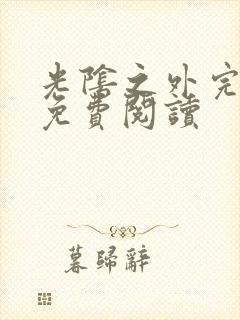 光陰之外完
免費閱讀
暮歸辭